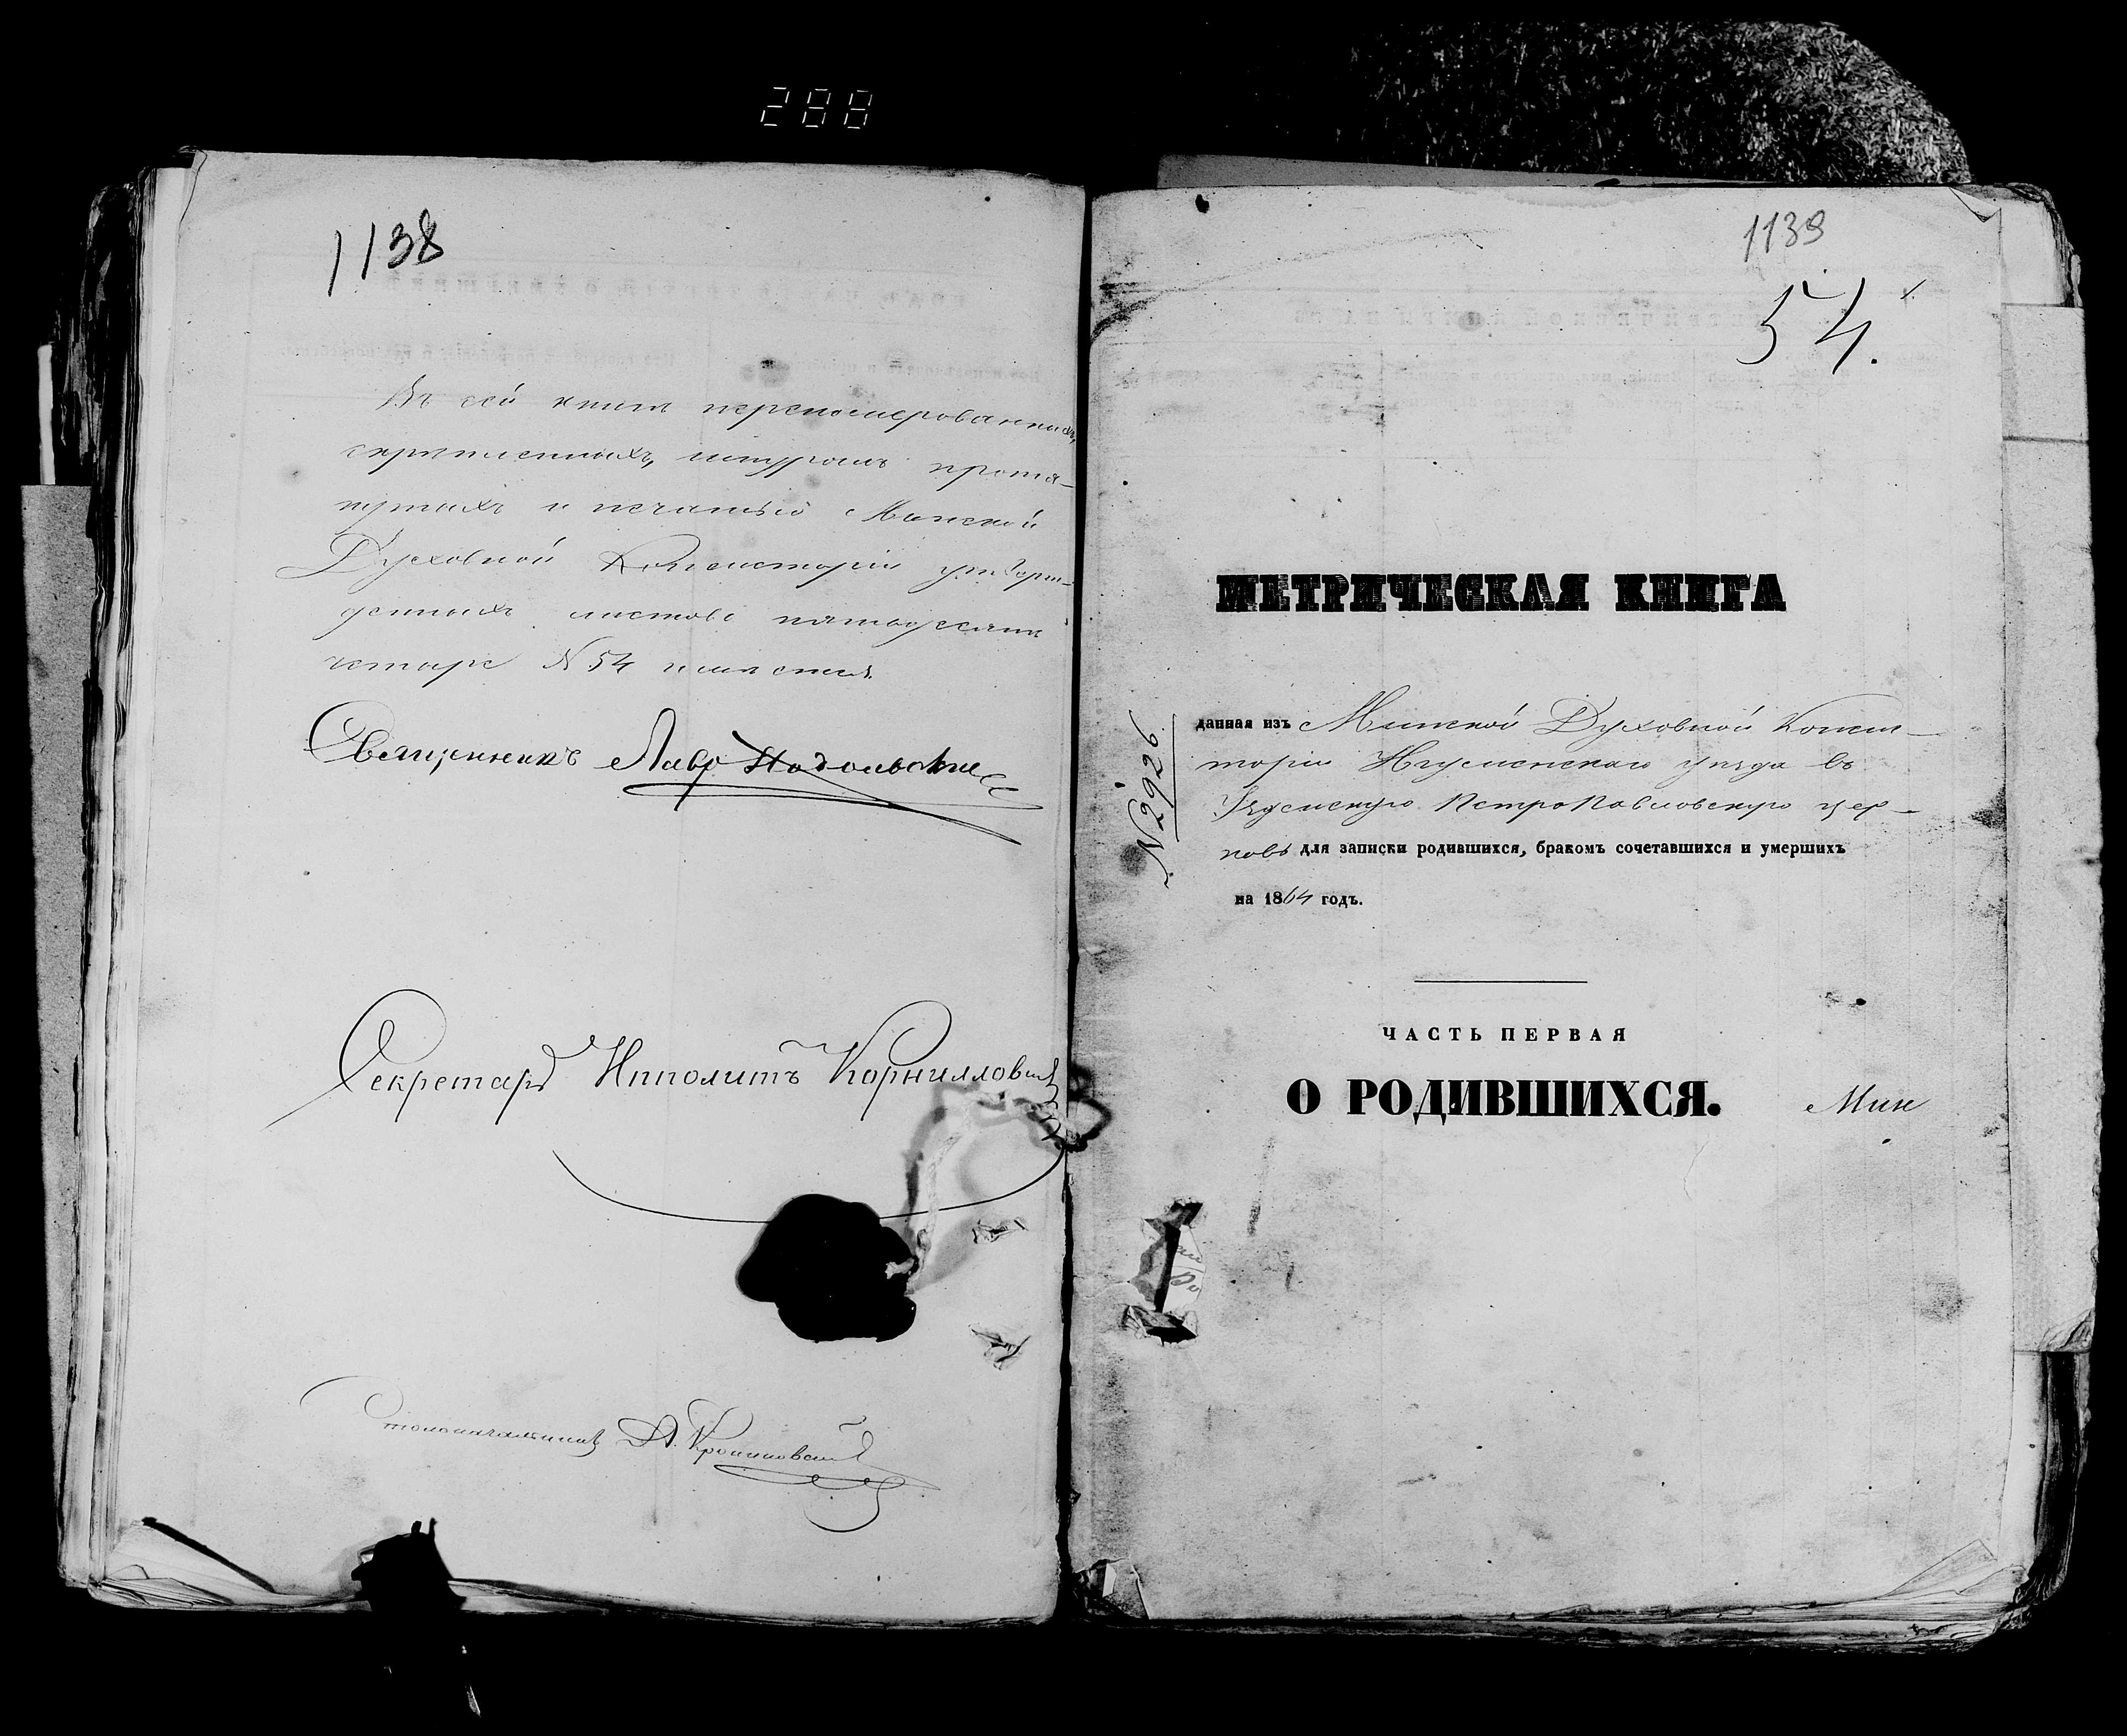 288
1138
Въ сей книгѣ переномерованныхъ,
скрѣпленныхъ, шнуромъ протя-
нутыхъ и печатью Минской
Духовной Консисторіи утверж-
денныхъ листовъ пятьдесятъ
четыре N 54 имѣется.
Священникъ
Секретарь Ипполитъ Корниловичъ
Столоначальникъ
1139
54.
МЕТРИЧЕСКАЯ КНИГА
N 2926.
данная изъ Минской Духовной Консис-
торіи Игуменскаго уѣзда въ
Узденскую Петропавловскую цер-
ковь для записки родившихся, бракомъ сочетавшихся и умершихъ
на 1864 годъ.
ЧАСТЬ ПЕРВАЯ
О РОДИВШИХСЯ.
Мин